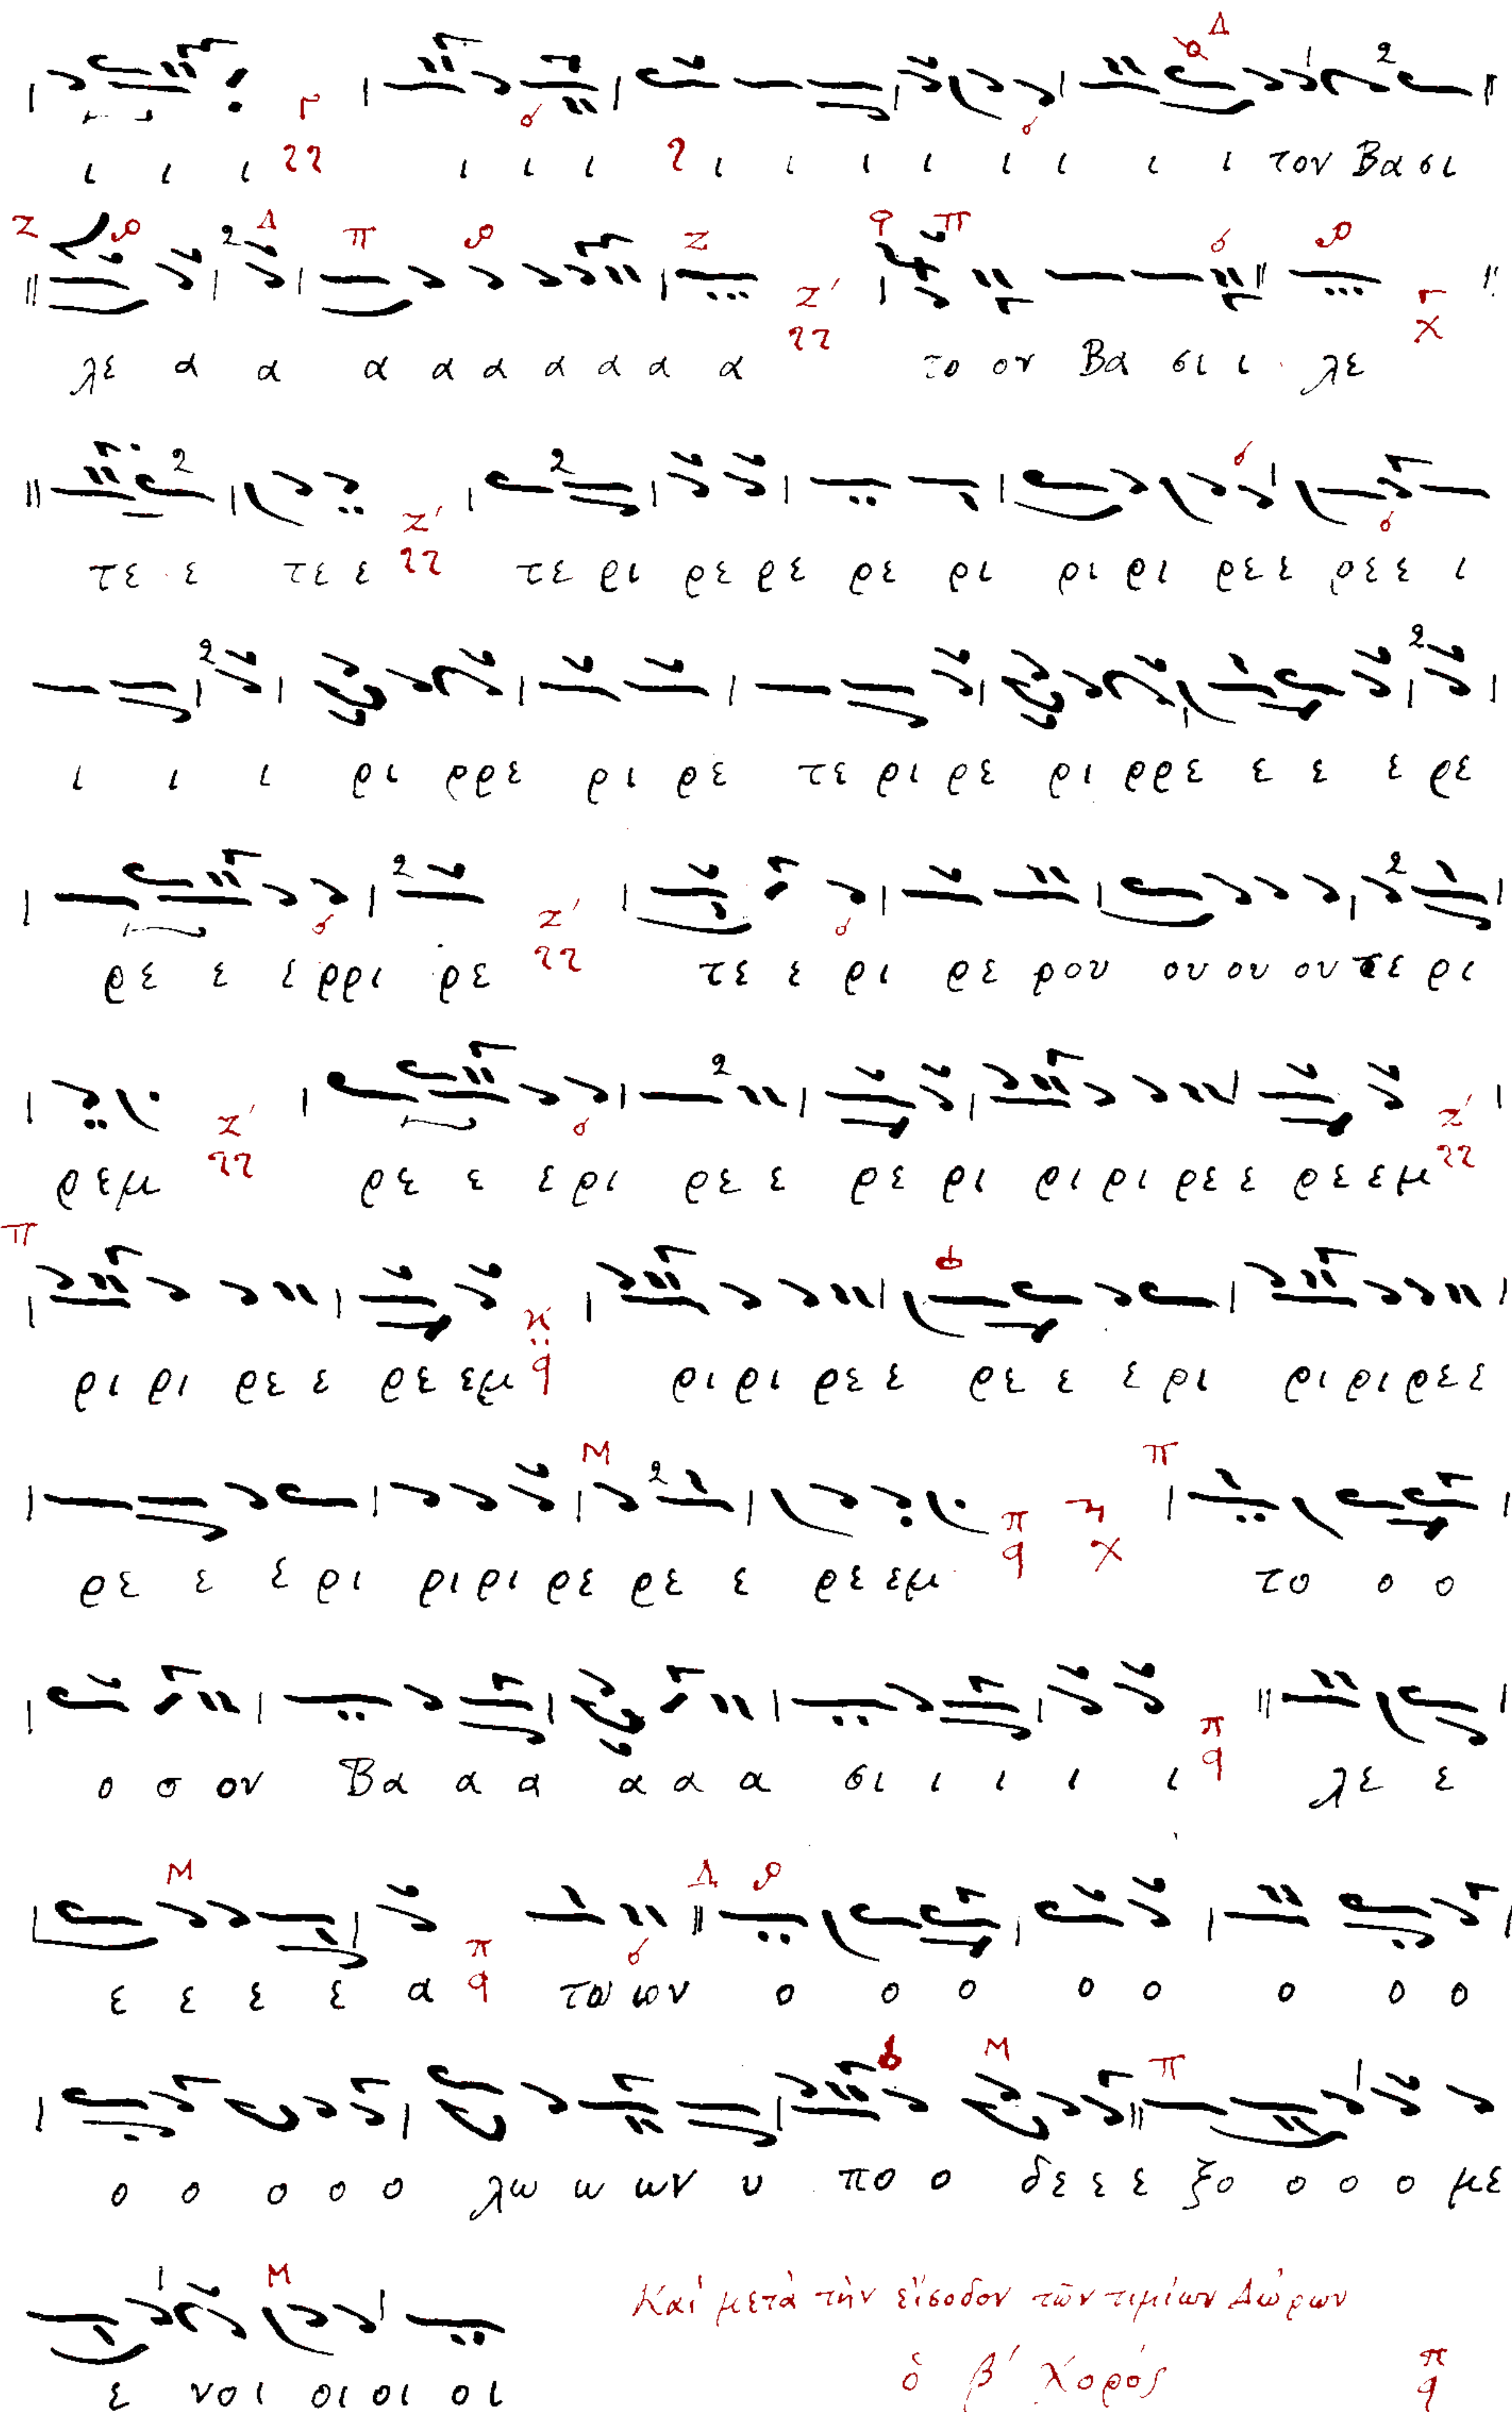 ι ι ι ι ι ι ι ι ι ι ι ι ι ι τον Βα σι
λε α α α α α α α α α το ον Βα σι ι λε
τε ε τε ε τε ρι ρε ρε ρε ρι ρι ρι ρε ε ρε ε ι
ι ι ι ρι ρρε ρι ρε τε ρι ρε ρι ρρε ε ε ε ρε
ρε ε ε ρρι ρε τε ε ρι ρε ρου ου ου ου τε ρι
ρεμ ρε ε ε ρι ρε ε ρε ρι ρι ρι ρε ε ρε εμ
ρι ρι ρε ε ρε εμ ρι ρι ρε ε ρε ε ε ρι ρι ρι ρε ε
ρε ε ε ρι ρι ρι ρε ρε ε ρε εμ το ο ο
ο ο ον Βα α α α α α σι ι ι ι ι λε ε
ε ε ε ε α τω ων ο ο ο ο ο ο ο ο
ο ο ο ο ο λω ω ων υ πο ο δε ε ε ξο ο ο ο με
ε νοι οι οι οι Καὶ μετὰ τὴν εἴσοδον τῶν τιμίων Δώρων
ὁ β΄ Χορός